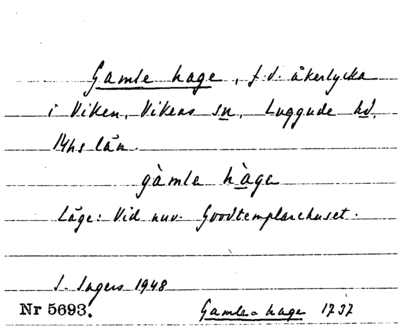 Gamle hage, f.d. åkerlycka
i Viken, Vikens sn, Luggude hd,
Mhs län.
gàmle hàge
Läge: Vid nuv. Goodtemplarehuset.
S. Ingers 1948
Nr 5693.
Gamle hage 1737